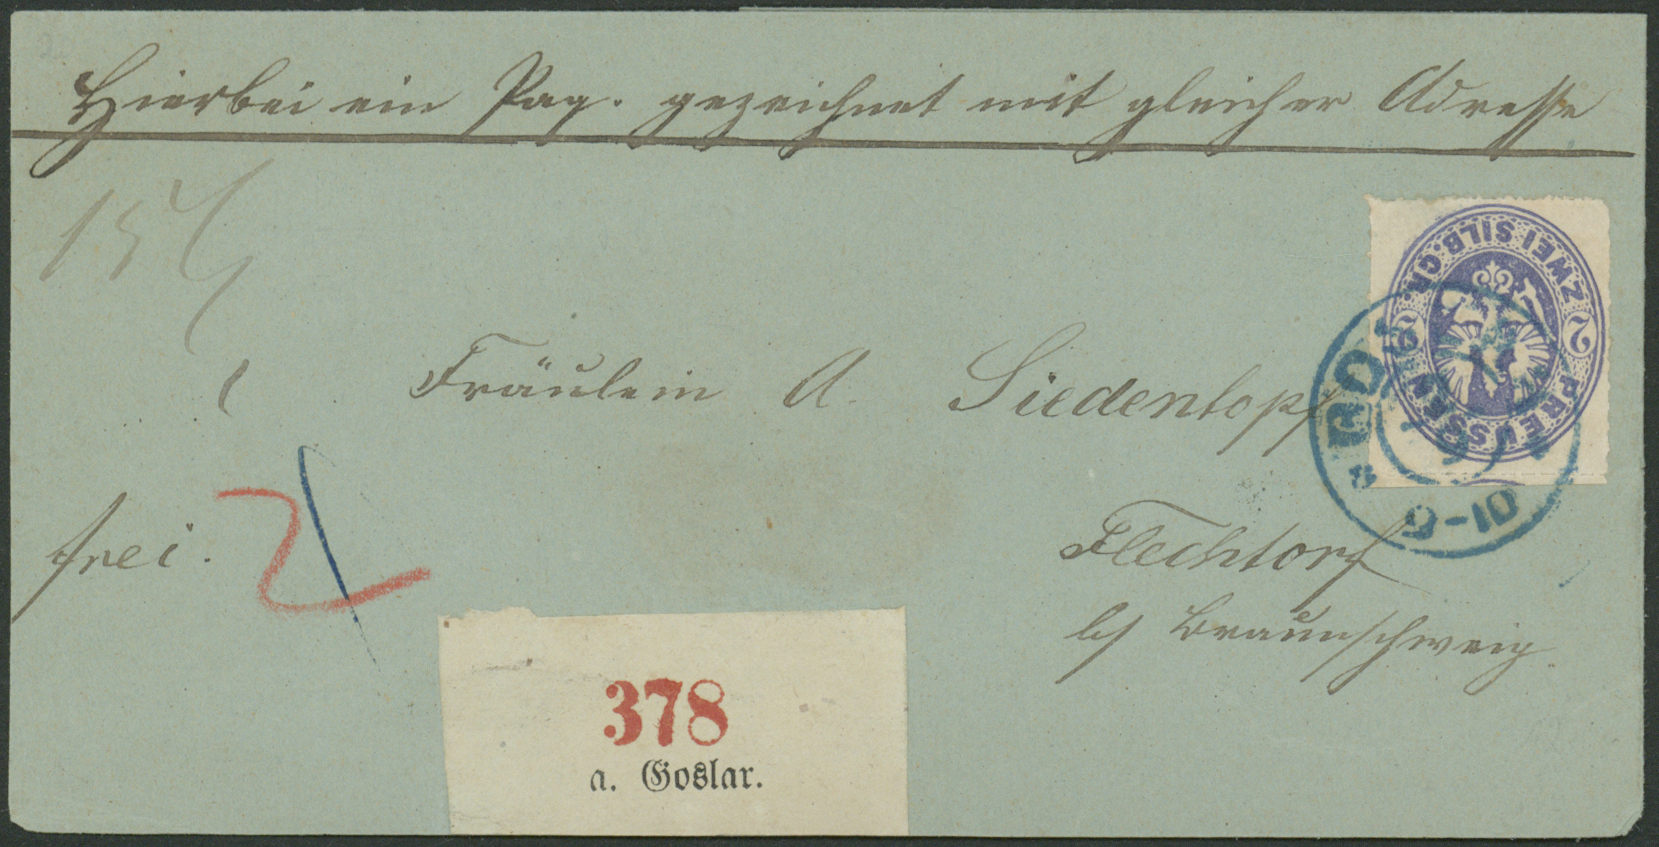 Hierbei ein Paq. gezeichnet mit gleicher Adresse
ZWEI SILB. GR.
2 2
PREUSSEN
Fräulein A. Siedentopf
frei.
2
9-10
Flechtorf
b/ Braunschweig.
378
a. Goslar.